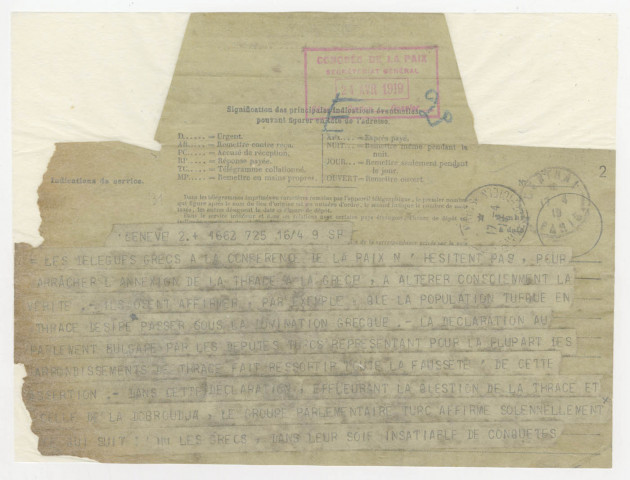 CONGRÈS DE LA PAIX
SECRÉTARIAT GÉNÉRAL
24 AVR 1919
Signification des principales indications éventuelles
pouvant figurer en tête de l'adresse.
D...... = Urgent.
AR..... = Remettre contre reçu.
PC..... = Accusé de réception.
RP..... = Réponse payée.
TC..... = Télégramme collationné.
MP..... = Remettre en mains propres.
= Exprès payé.
NUIT... = Remettre même pendant la nuit.
JOUR... = Remettre seulement pendant le jour.
OUVERT = Remettre ouvert.
2
Indications de service.
CENTRAL
PARIS
GENEVE 2.+ 1662 725 16/4 9 SP
LES DELEGUES GRECS A LA CONFERENCE DE LA PAIX N' HESITENT PAS, POUR
ARRACHER L'ANNEXION DE LA THRACE A LA GRECE, A ALTERER CONSCIEMMENT LA
VERITE .- ILS OSENT AFFIRMER, PAR EXEMPLE, QUE LA POPULATION TURQUE EN
THRACE DESIRE PASSER SOUS LA DOMINATION GRECQUE .- LA DECLARATION AU
PARLEMENT BULGARE PAR LES DEPUTES TURCS REPRESENTANT POUR LA PLUPART DES
ARRONDISSEMENTS DE THRACE FAIT RESSORTIR TOUTE LA FAUSSETE DE CETTE
ASSERTION .- DANS CETTE DECLARATION, EFFLEURANT LA QUESTION DE LA THRACE ET
CELLE DE LA DOBROUDJA, LE GROUPE PARLEMENTAIRE TURC AFFIRME SOLENNELLEMENT
QUI SUIT : LES GRECS, DANS LEUR SOIF INSATIABLE DE CONQUETES